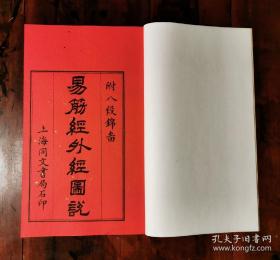 附八段錦畵
易筋經外經圖說
上海同文書局石印
孔夫子旧书网